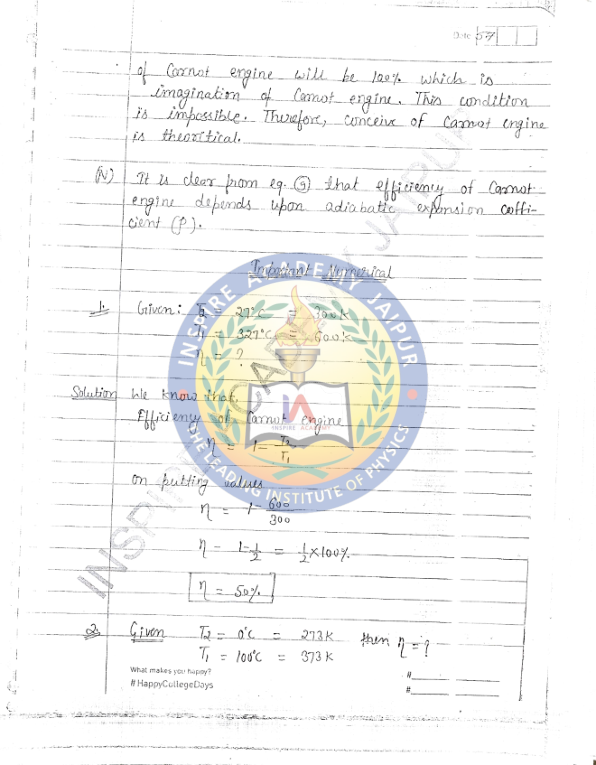 Date 57
of Carnot engine will be 100% which is
imagination of Carnot engine. This condition
is impossible. Therefore, conceive of Carnot engine
is theoritical.
(IV) It is clear from eq. (9) that efficiency of Carnot
engine depends upon adiabatic expansion coffi-
cient (ρ).
Important Numerical
1. Given: T2 = 27°C = 300K
T1 = 327°C = 600K
η = ?
Solution We know that.
Efficiency of Carnot engine
η = 1- T2/T1
on putting values
η = 1- 600/300
η - 1-1/2 = 1/2 ×100%
η = 50%
2. Given T2 = 0°C = 273K then η = ?
T1 = 100°C = 373K
What makes you happy?
#HappyCollegeDays
#
#
INSPIRE ACADEMY JAIPUR
INSPIRE ACADEMY JAIPUR
IA
INSPIRE ACADEMY
THE LEADING INSTITUTE OF PHYSICS